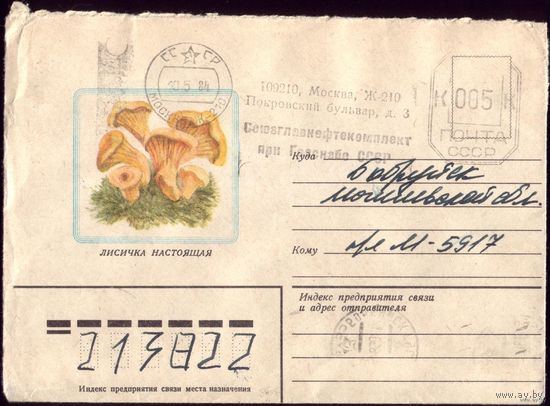 СССР
10 5 84
МОСКВА Ж-210
109210, Москва, Ж-210
Покровский бульвар, д. 3
Союзглавнефтекомплект
при Госснабе СССР
К 005 К
ПОЧТА
СССР
Куда Бобруйск
Могилевской обл.
Кому п/я М-5917
ЛИСИЧКА НАСТОЯЩАЯ
Индекс предприятия связи
и адрес отправителя
213822
Индекс предприятия связи места назначения
www.ay.by